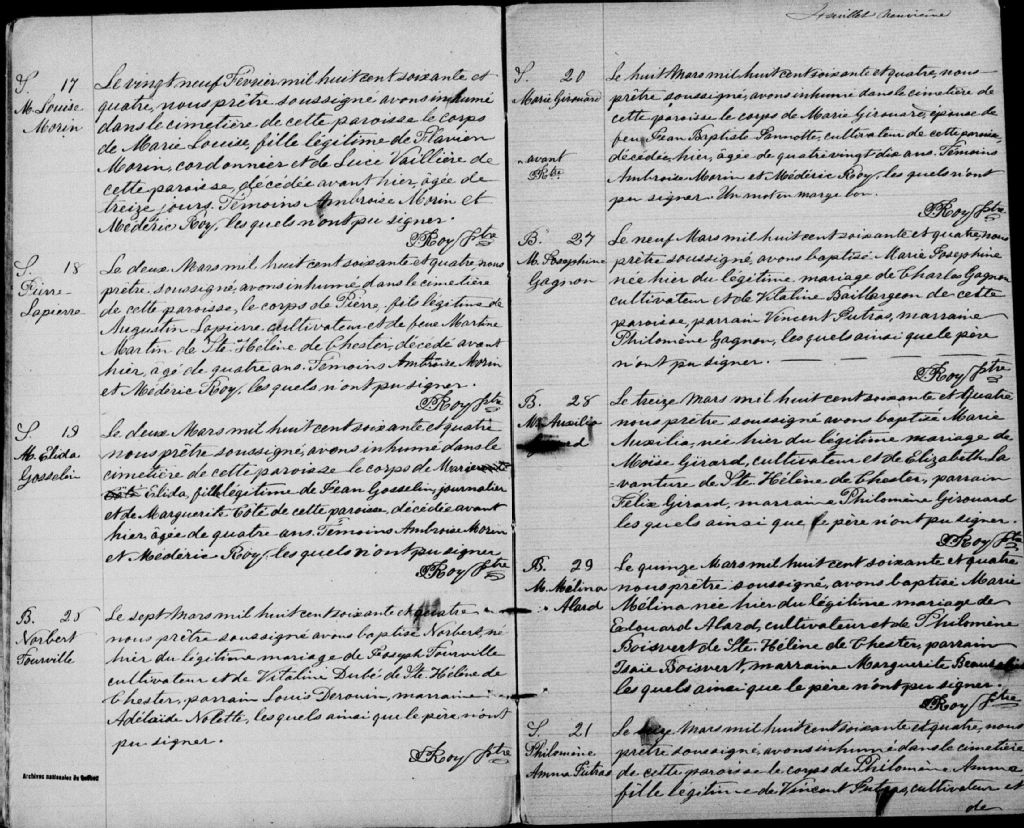 S. 17
M. Louise
Morin
Le vingt neuf Fevrier mil huit cent soixante et
quatre, nous prêtre soussigné avons inhumé
dans le cimetière de cette paroisse le corps
de Marie Louise, fille légitime de Flavien
Morin, cordonnier et de Luce Vaillière de
cette paroisse, décédée avant hier, âgée de
treize jours. Témoins Ambroise Morin et
Médéric Roy, les quels n'ont pu signer.
Roy Ptre
S. 18
Pierre
Lapierre
Le deux Mars mil huit cent soixante et quatre, nous
prêtre soussigné, avons inhumé dans le cimetière
de cette paroisse, le corps de Pierre, fils légitime de
Augustin Lapierre cultivateur et de feue Martine
Martin de Ste Hélène de Chester, décédé avant
hier, âgé de quatre ans. Témoins Ambroise Morin
et Médéric Roy, les quels n'ont pu signer.
Roy Ptre
S. 19
M. Elida
Gosselin
Le deux Mars mil huit cent soixante et quatre
nous prêtre soussigné, avons inhumé dans le
cimetière de cette paroisse le corps de Marie
Elida, fille légitime de Jean Gosselin, journalier
et de Marguerite Côté de cette paroisse, décédée avant
hier, âgée de quatre ans. Témoins Ambroise Morin
et Médéric Roy, les quels n'ont pu signer
Roy Ptre
B. 26
Norbert
Tourville
Le sept Mars mil huit cent soixante et quatre
nous prêtre soussigné avons baptisé Norbert, né
hier du légitime mariage de Joseph Tourville
cultivateur et de Vitaline Dubé de Ste Hélène de
Chester, parrain Louis Derouin, marraine
Adélaide Nolette, les quels ainsi que le père n'ont
pu signer.
Roy Ptre
Archives nationales du Québec
feuillet neuvième
S. 20
Marie Girouard
avant
Le huit Mars mil huit cent soixante et quatre, nous
prêtre soussigné, avons inhumé dans le cimetière de
cette paroisse le corps de Marie Girouard, épouse de
feu Jean Baptiste Pannotte, cultivateur de cette paroisse,
décédée, hier, âgée de quatre vingt dix ans. Témoins
Ambroise Morin et Médéric Roy, les quels n'ont
pu signer. Un mot en marge bon.
Roy Ptre
B. 27
M. Josephine
Gagnon
Le neuf Mars mil huit cent soixante et quatre, nous
prêtre soussigné, avons baptisé Marie Josephine
née hier du légitime mariage de Charles Gagnon
cultivateur et de Vitaline Baillargeon de cette
paroisse, parrain Vincent Putras, marraine
Philomène Gagnon, les quels ainsi que le père
n'ont pu signer.
Roy Ptre
B. 28
M. Auxilia
Girard
Le treize Mars mil huit cent soixante et quatre
nous prêtre soussigné avons baptisé Marie
Auxilia, née hier du légitime mariage de
Moïse Girard, cultivateur et de Elizabeth La
vanture de Ste Hélène de Chester, parrain
Félix Girard, marraine Philomène Girouard
les quels ainsi que le père n'ont pu signer.
Roy Ptre
B. 29
M. Mélina
Alard
Le quinze Mars mil huit cent soixante et quatre
nous prêtre soussigné, avons baptisé Marie
Mélina née hier du légitime mariage de
Edouard Alard, cultivateur et de Philomène
Boisvert de Ste Hélène de Chester, parrain
Isaïe Boisvert, marraine Marguerite Beausoleil
les quels ainsi que le père n'ont pu signer.
Roy Ptre
S. 21
Philomène
Amma Putras
Le Mars mil huit cent soixante et quatre, nous
prêtre soussigné, avons inhumé dans le cimetière
de cette paroisse le corps de Philomène Amma
fille légitime de Vincent Putras, cultivateur et
de